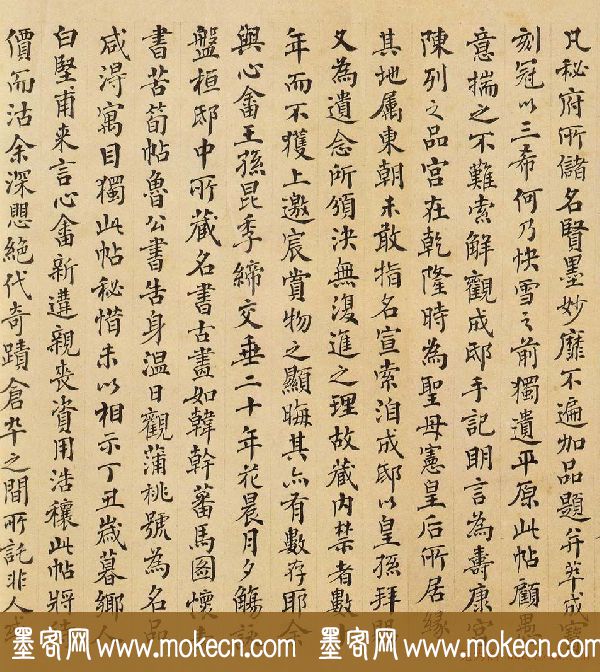 凡秘府所儲名賢墨妙靡不遍加品題并萃成寶
刻冠以三希何乃快雪之前獨遺平原此帖顧愚
意揣之不難索解觀成邸手記明言為壽康宮
陳列之品宮在乾隆時為聖母憲皇后所居緣
其地屬東朝未敢指名宣索洎成邸以皇孫拜
又為遺念所頒決無復進之理故藏內禁者數
年而不獲上邀宸賞物之顯晦其亦有數存耶余
與心畬王孫昆季締交垂二十年花晨月夕觴詠
盤桓邸中所藏名書古畫如韓幹蕃馬圖懷
書苦筍帖魯公書告身溫日觀蒲桃號為名品
咸得寓目獨此帖秘惜未以相示丁丑歲暮鄉人
白堅甫來言心畬新遘親喪資用浩穰此帖將
價而沽余深懼絕代奇蹟倉卒之間所託非人或
墨客网 www.mokecn.com 墨客网 www.mokecn.com